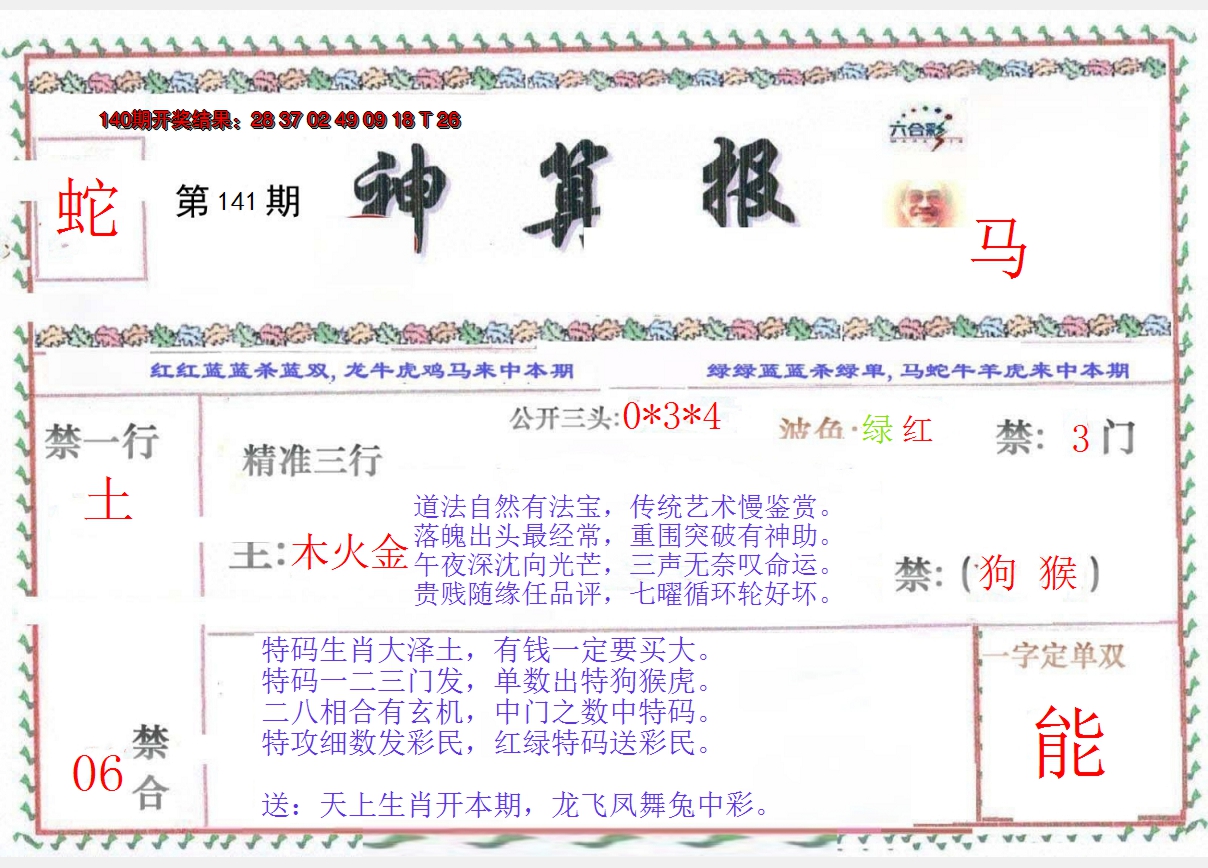 140期开奖结果：28 37 02 49 09 18 T 26
六合彩
蛇
第141期
神算报
马
红红蓝蓝杀蓝双, 龙牛虎鸡马来中本期
绿绿蓝蓝杀绿单, 马蛇牛羊虎来中本期
公开三头:0*3*4
波色:绿 红
禁: 3门
禁一行
土
精准三行
主:木火金
道法自然有法宝，传统艺术慢鉴赏。
落魄出头最经常，重围突破有神助。
午夜深沈向光芒，三声无奈叹命运。
贵贱随缘任品评，七曜循环轮好坏。
禁:(狗 猴)
特码生肖大泽土，有钱一定要买大。
特码一二三门发，单数出特狗猴虎。
二八相合有玄机，中门之数中特码。
特攻细数发彩民，红绿特码送彩民。
送：天上生肖开本期，龙飞凤舞兔中彩。
06
禁合
一字定单双
能